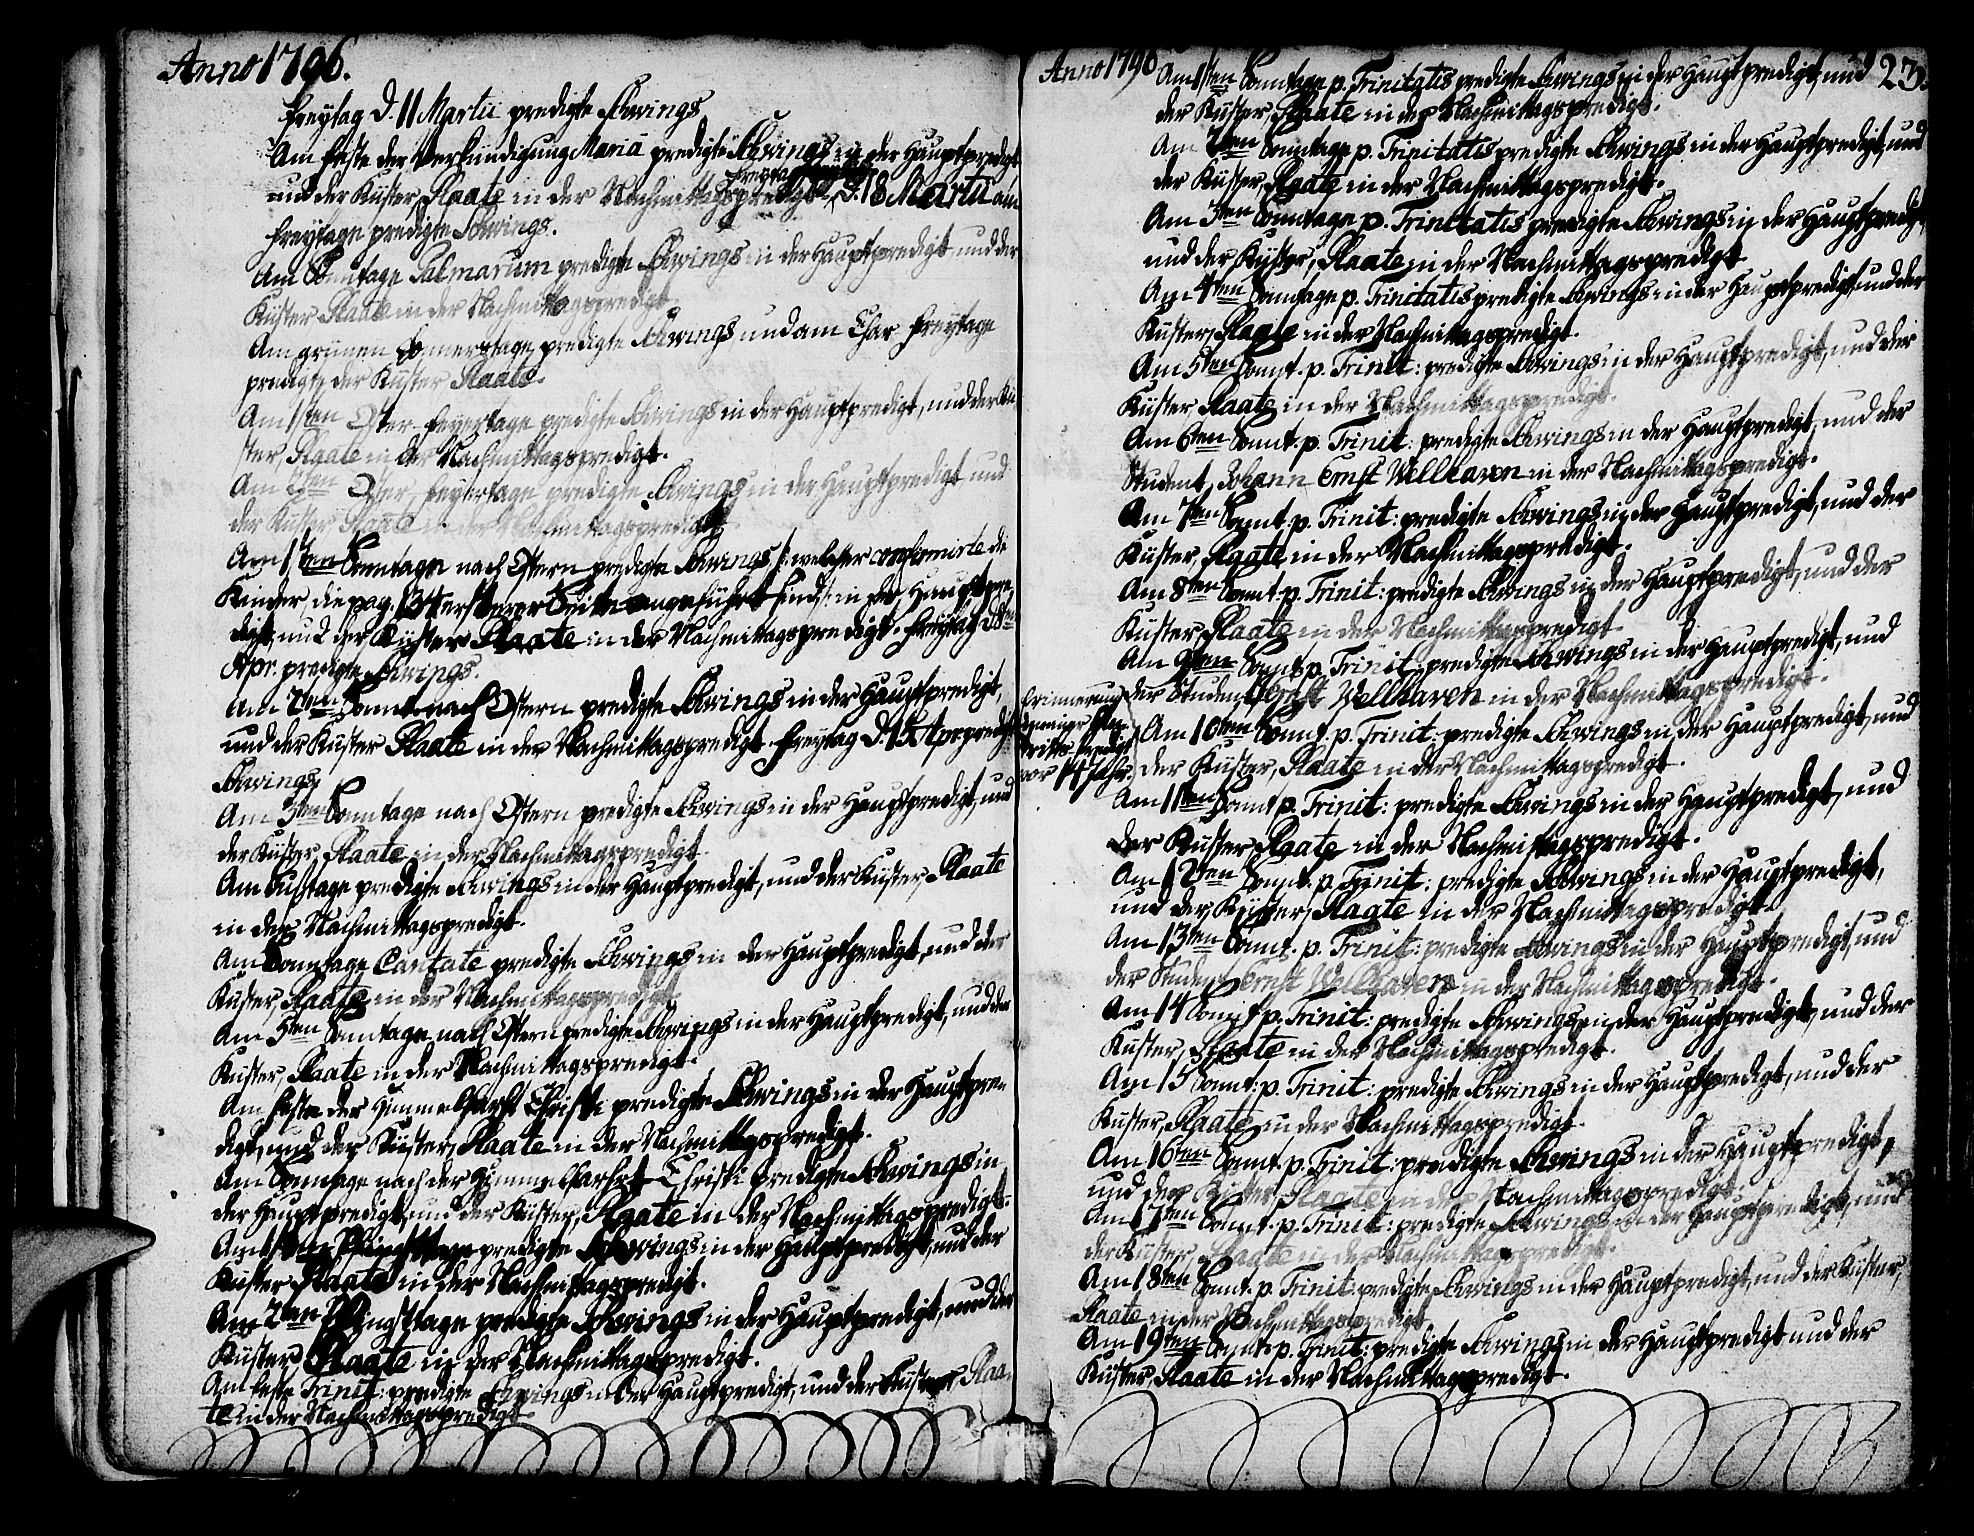 Anno 1796.
Freytag d. 11 Martii predigte Schwings
Am Feste der Verkündigung Mariä predigte Schwings in der Hauptpredigt
und der Küster, Plaate in der Nachmittagspredigt, d. 18 Martii am
Freytage predigte Schwings.
Am Sonntage Palmarum predigte Schwings in der Hauptpredigt, und der
Küster Plaate in der Nachmittagspredigt.
Am grünen Donnerstage predigte Schwings und am Char Freytage
predigte der Küster Plaate.
Am 1sten Oster-Feyertage predigte Schwings in der Hauptpredigt, und der Kü-
ster, Plaate in der Nachmittagspredigt.
Am 2ten Oster, Feyertage predigte Schwings in der Hauptpredigt und
der Küster Plaate in der Nachmittagspredigt.
Am 1sten Sonntage nach Ostern predigte Schwings /: welcher confirmirte die
Kinder, die pag. 134 ersterer Seite angeführt sind :/ in der Hauptpre-
digt, und der Küster Plaate in der Nachmittagspredigt. Freytag d 8ten
Apr. predigte Schwings.
Am 2ten Sonnt. nach Ostern predigte Schwings in der Hauptpredigt,
und der Küster Plaate in der Nachmittagspredigt. Freytag d. 15 Apr predigte
Schwings.
Am 3ten Sonntage nach Ostern predigte Schwings in der Hauptpredigt, und
der Küster, Plaate in der Nachmittagspredigt
Am Bußtage predigte Schwings in der Hauptpredigt, und der Küster, Plaate
in der Nachmittagspredigt.
Am Sonntage Cantate predigte Schwings in der Hauptpredigt, und der
Küster, Plaate in der Nachmittagspredigt.
Am 5ten Sonntage nach Ostern predigte Schwings in der Hauptpredigt, und der
Küster, Plaate in der Nachmittagspredigt.
Am Feste der Himmelfarht Christi predigte Schwings in der Hauptpre-
digt, und der Küster, Plaate in der Nachmittagspredigt.
Am Sonntage nach der Himmelfarht Christi predigte Schwings in
der Hauptpredigt, und der Küster, Plaate in der Nachmittagspredigt.
Am 1sten Pfingsttage predigte Schwings in der Hauptpredigt, und der
Küster Plaate in der Nachmittagspredigt.
Am 2ten Pfingsttage predigte Schwings in der Hauptpredigt, und der
Küster Plaate in der Nachmittagspredigt.
Am Feste Trinit: predigte Schwings in der Hauptpredigt, und der Küster Plaa-
te in der Nachmittagspredigt.
Anno 1796
23.
Am 1sten Sonntage p. Trinitatis predigte Schwings in der Hauptpredigt, und
der Küster, Plaate in der Nachmittagspredigt.
Am 2ten Sonntage p. Trinitatis predigte Schwings in der Hauptpredigt, und
der Küster, Plaate in der Nachmittagspredigt.
Am 3ten Sonntage p. Trinitatis predigte Schwings in der Hauptpredigt,
und der Küster, Plaate in der Nachmittagspredigt
Am 4ten Sonntage p. Trinitatis predigte Schwings in der Hauptpredigt, und der
Küster, Plaate in der Nachmittagspredigt.
Am 5ten Sonnt. p. Trinit: predigte Schwings in der Hauptpredigt, und der
Küster Plaate in der Nachmittagspredigt.
Am 6ten Sonnt. p. Trinit: predigte Schwings in der Hauptpredigt, und der
Student, Johann Ernst Wellhaven in der Nachmittagspredigt.
Am 7ten Sonnt. p. Trinit: predigte Schwings in der Hauptpredigt, und der
Küster, Plaate in der Nachmittagspredigt.
Am 8ten Sonnt. p. Trinit: predigte Schwings in der Hauptpredigt, und der
Küster, Plaate in der Nachmittagspredigt
Am 9ten Sonnt. p. Trinit: predigte Schwings in der Hauptpredigt, und
der Student Ernst Wellhaven in der Nachmittagspredigt.
Erinnerung
meiner An-
tritts Predigt
vor 14 Jahr.
Am 10ten Sonnt. p. Trinit: predigte Schwings in der Hauptpredigt, und
der Küster, Plaate in der Nachmittagspredigt.
Am 11ten Sonnt p. Trinit: predigte Schwings in der Hauptpredigt, und
der Küster Plaate in der Nachmittagspredigt.
Am 12ten Sonnt. p. Trinit: predigte Schwings in der Hauptpredigt,
und der Küster, Plaate in der Nachmittagspredigt.
Am 13ten Sonnt. p. Trinit: predigte Schwings in der Hauptpredigt, und
der Student Ernst Wellhaven in der Nachmittagspredigt.
Am 14 Sonnt p. Trinit: predigte Schwings in der Hauptpredigt, und der
Küster, Plaate in der Nachmittagspredigt.
Am 15 Sonnt: p. Trinit: predigte Schwings in der Hauptpredigt, und der
Küster, Plaate in der Nachmittagspredigt.
Am 16ten Sonnt. p. Trinit: predigte Schwings in der Hauptpredigt,
und der Küster, Plaate in der Nachmittagspredigt.
Am 17ten Sonnt. p. Trinit: predigte Schwings in der Hauptpredigt, und
der Küster, Plaate in der Nachmittagspredigt.
Am 18ten Sonnt. p. Trinit. predigte Schwings in der Hauptpredigt, und der Küster,
Plaate in der Nachmittagspredigt.
Am 19ten Sonnt. p. Trinit: predigte Schwings in der Hauptpredigt und der
Küster, Plaate in der Nachmittagspredigt.